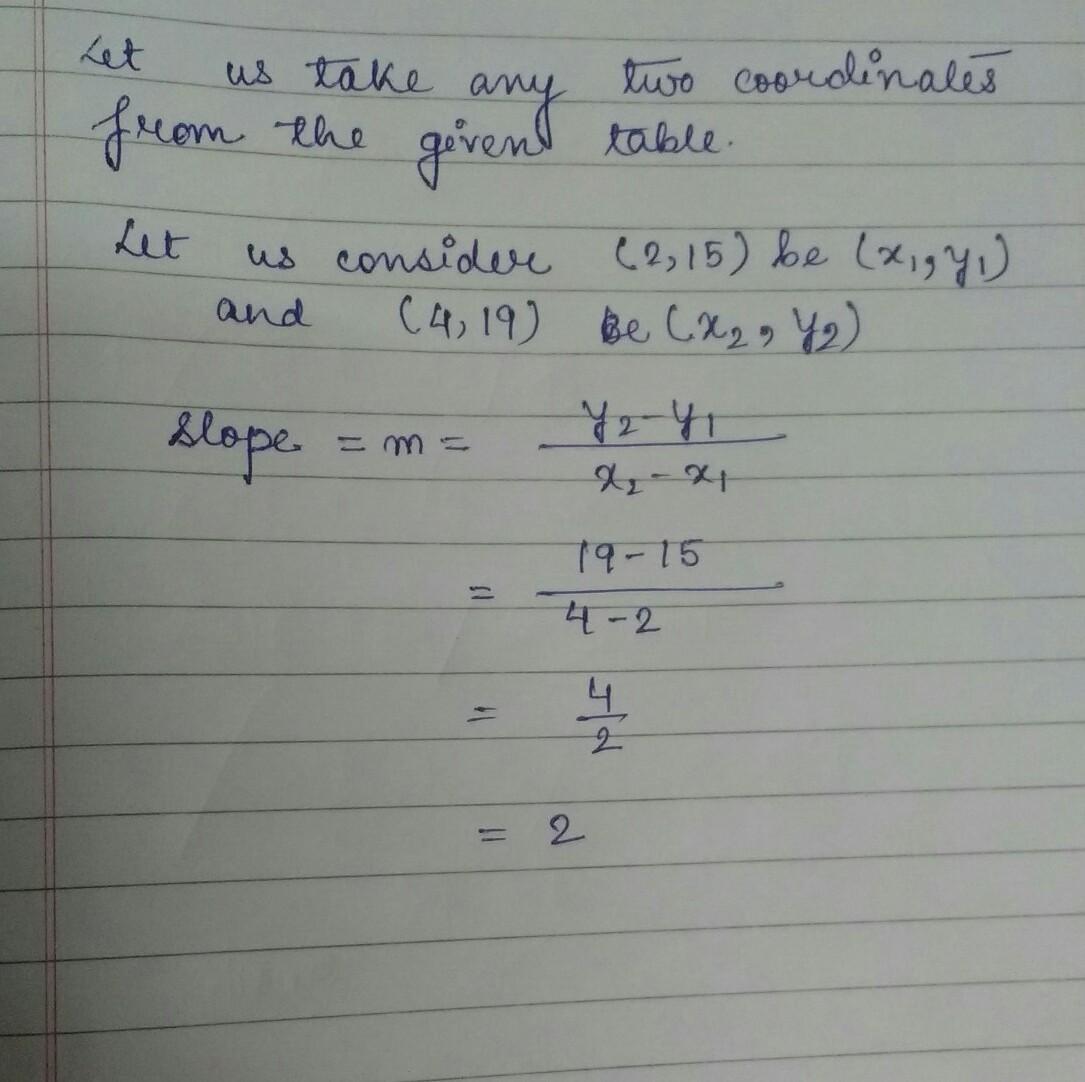 Let us take any two coordinates
from the given table.
Let us consider (2,15) be (x₁, y₁)
and (4,19) be (x₂, y₂)
Slope = m = y₂-y₁
x₂-x₁
= 19-15
4-2
= 4
2
= 2